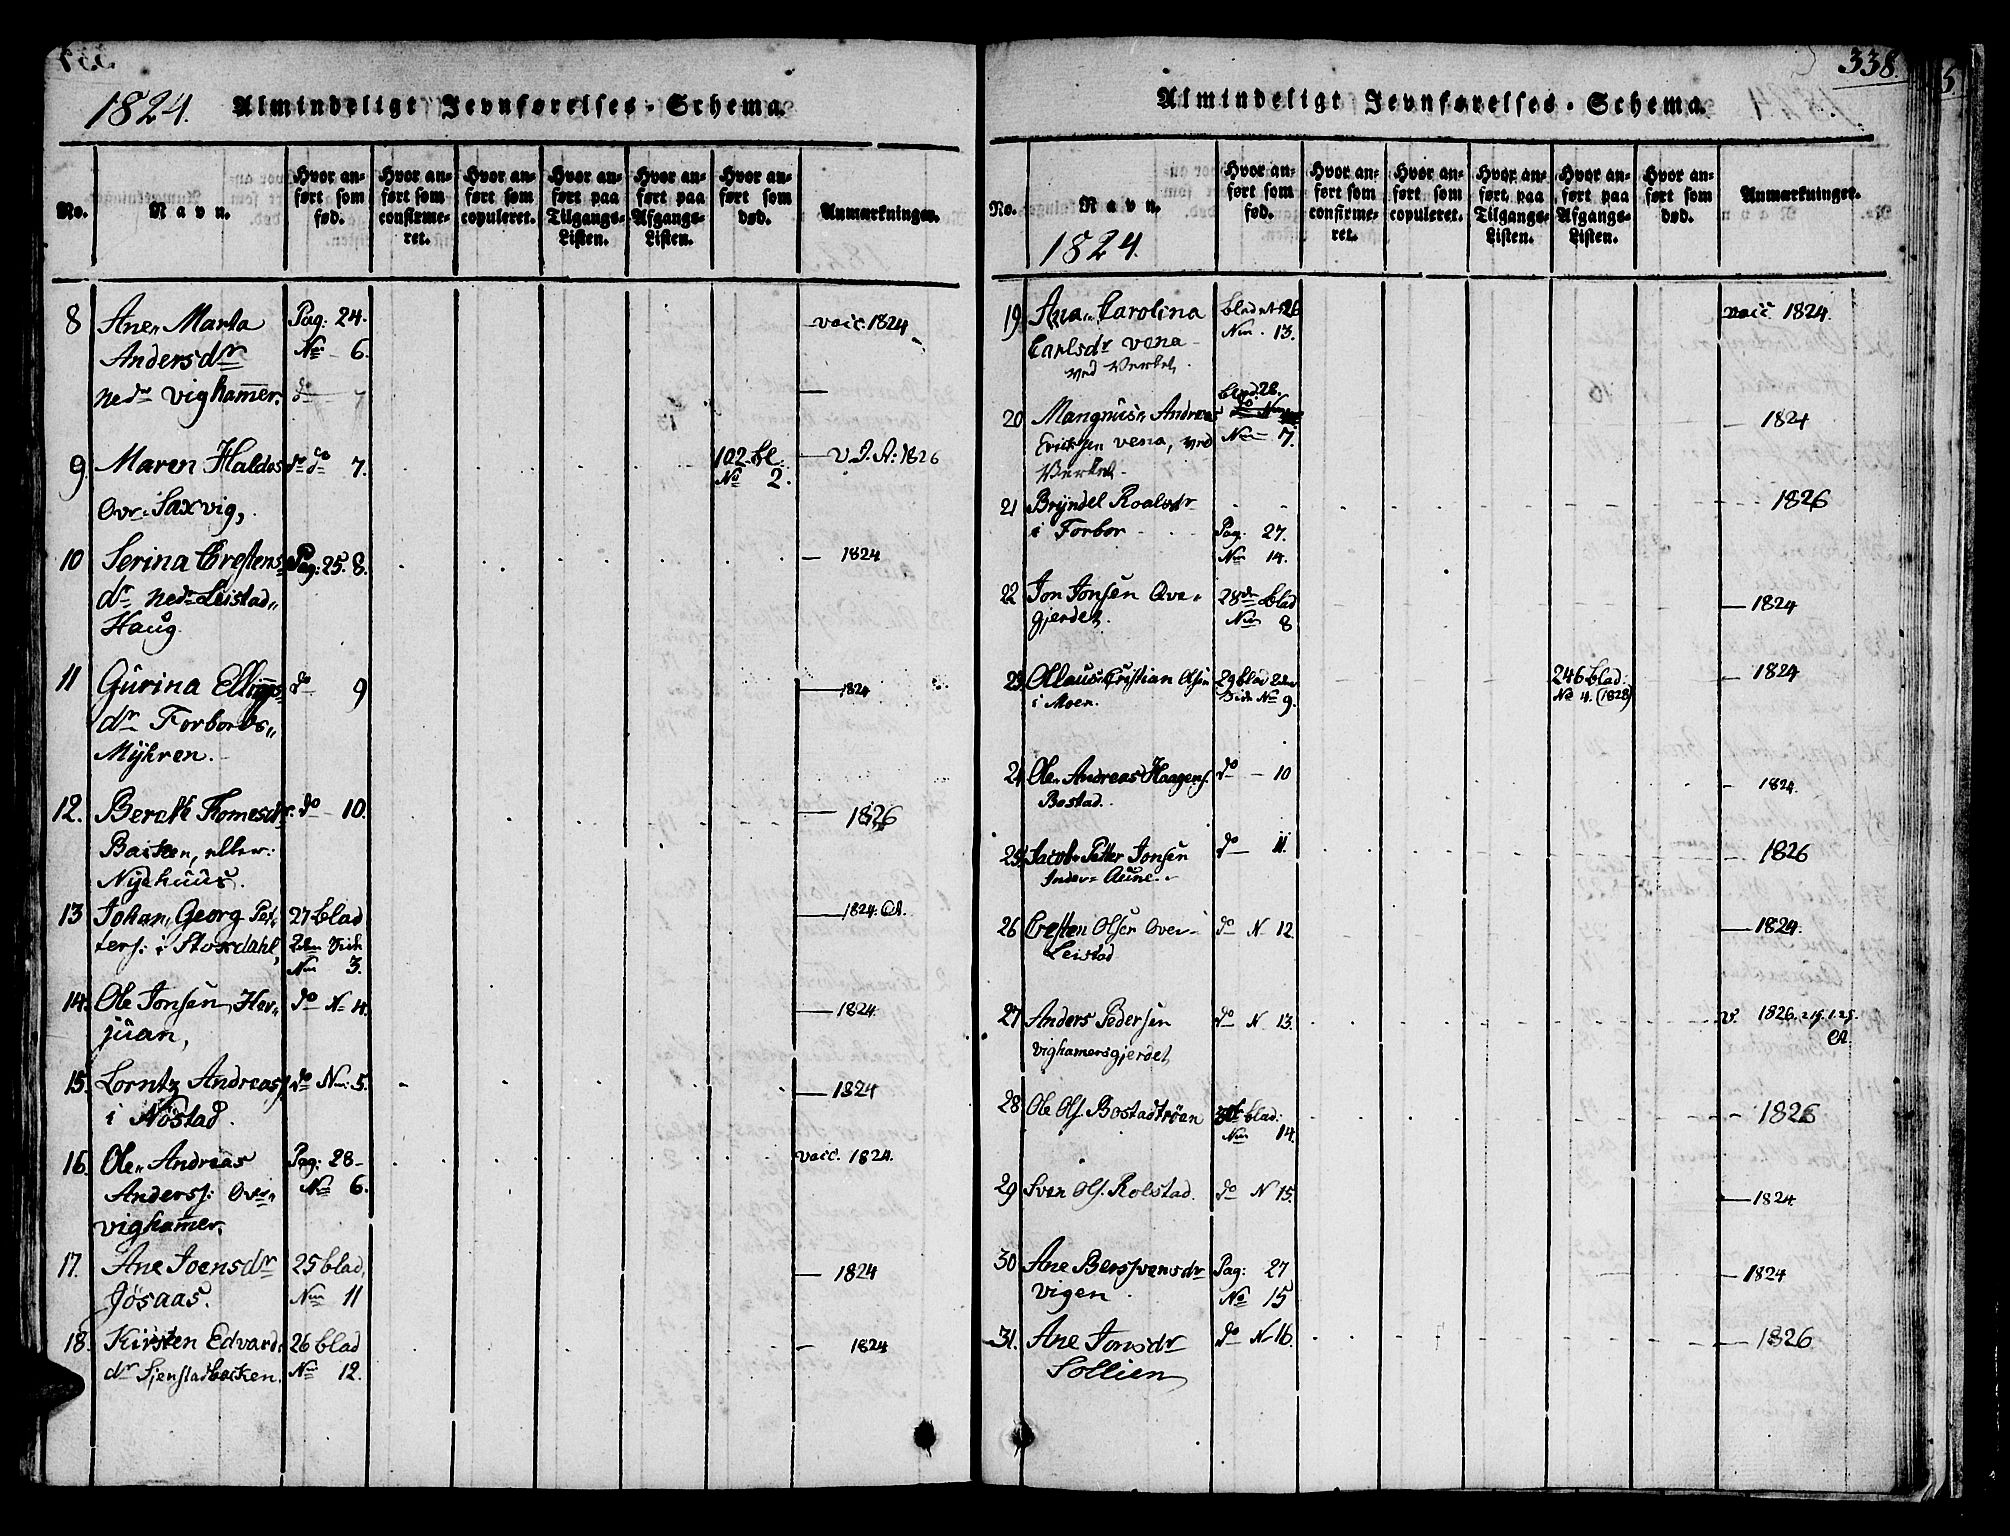 1824. Almindeligt Jevnførelses-Schema.
No.
Navn.
Hvor anført som fød.
Hvor anført som confirmeret.
Hvor anført som copuleret.
Hvor anført paa Tilgangs-Listen.
Hvor anført paa Afgangs-Listen.
Hvor anført som død.
Anmærkninger.
8 Ane„ Marta Pag: 24. vacc. 1824
Andersdr No 6.
nedr Vighamer. do 7 —
9. Maren Haldos dr do 7. 102 bl: V. J. A: 1826
No 2.
Ovr: Saxvig,
10 Serina Crestens Pag: 25. 8. — 1824
dr nedr Leistad„
Haug.
11 Gurina Ellings do 9 — 1824
dr Forbords„
Myhren.
12. Bereth Thomesdr. do 10. — 1826
Backen, eller:
Nyehuus.
13 Johan„ Georg Pet„ 27 blad — 1824.
ters: i Stordahl, 2den Side
Num 3.
14. Ole Jonsen, Her„ do No 4. — 1824
juan,
15. Lorntz Andreas do Num: 5. — 1824
i Nøstad.
16. Ole„ Andreas Pag: 28 vacc. 1824.
Anders: Ovr„ Num 6.
vighamer.
17. Ane Joensdr 25 blad, — 1824
Jøsaas. Num 11
18. Kirsten Edvard 26 blad — 1824
dr Sjenstadbacken. Num 12.
338.
Almindeligt Jevnførelses-Schema.
No.
Navn.
1824.
Hvor anført som fød.
Hvor anført som confirmeret.
Hvor anført som copuleret.
Hvor anført paa Tilgangs-Listen.
Hvor anført paa Afgangs-Listen.
Hvor anført som død.
Anmærkninger.
19. Ana„ Carolina blad 26 vacc 1824.
Carlsdr vena Num. 13.
ved Verket,
20 Mangnus„ Andreas blad. 28. — 1824
Ericksen vena, ved Num 7.
Verket.
21 Bryndel Roalsdr 1826
i Forbor Pag. 27.
Num 14.
22 Jon Jonsen Ove„ 28de blad — 1824
gjerdet. Num 8
23. Ollaus„ Cristian Olsen 29 blad 2den 246 blad: — 1824
i Moen. Side No 9. No 4. (1828)
24 Ole„ Andreas Haagens. do — 10 — 1824.
Bostad.
25. Jacob„ Petter Jonsen do — 11. — 1826
Inder„ Aune.
26 Cresten Olsen Over„ do N 12. — 1824.
Leistad
27 Anders Pedersen do N 13. v. 1826.
Vighamersgjerdet,
28 Ole Ols. Bostadtrøen blad: 1826
Num 14.
29 Sven Ols. Rolstad. do N 15. — 1824
30 Ane Bersvensdr Pag: 27 — 1824
Vigen. No 15
31. Ane Jonsdr do N 16. 1826
Sollien